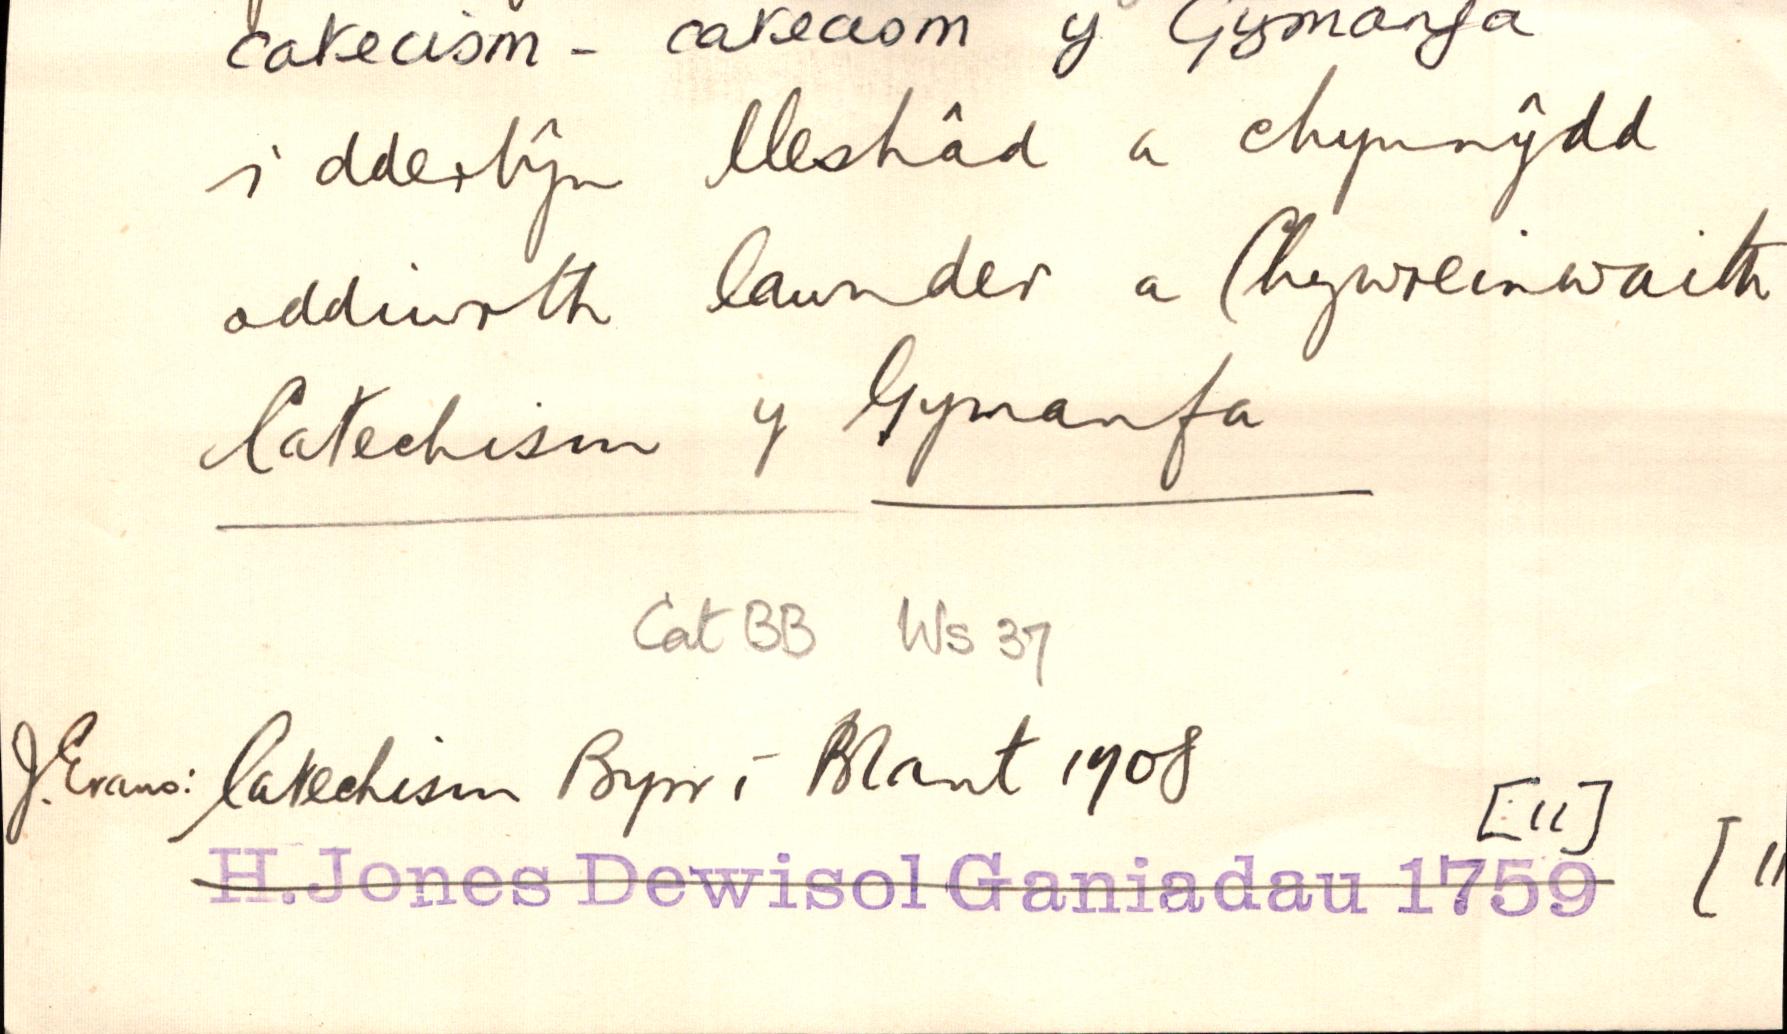 catecism - catecism y Gymanfa
i dderbŷn lleshâd a chynnŷdd
oddiwrth lawnder a Chywreinwaith
Catechism y Gymanfa
Cat BB Ws 37
J. Evans: Catechism Byrr i Blant 1908
[11]
H. Jones Dewisol Ganiadau 1759 [11